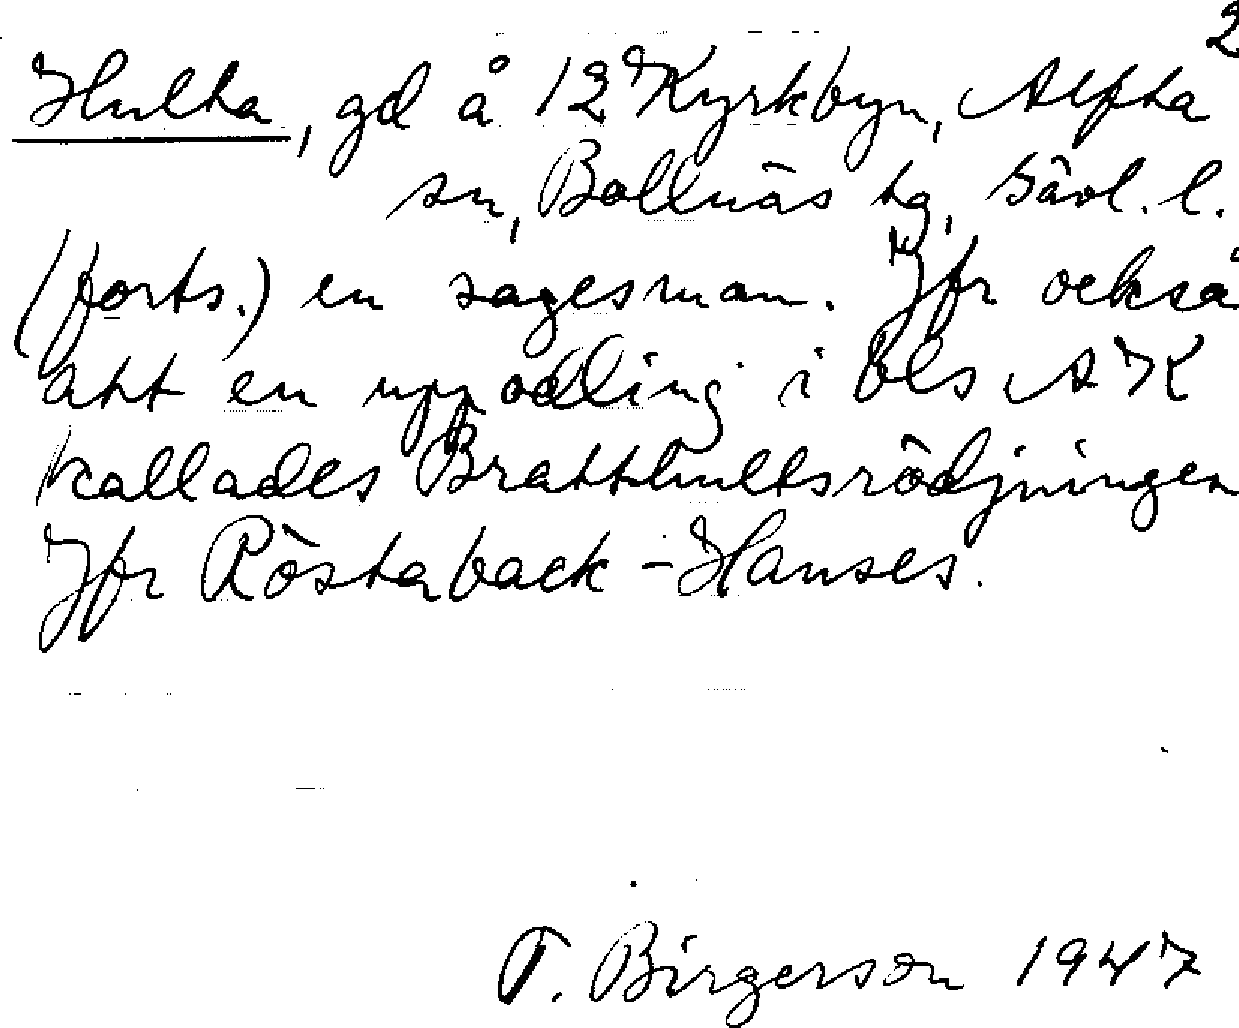 2
Hulta, gd å 12 Kyrkbyn, Alfta
sn, Bollnäs tg, Gävl. l.
(forts.) en sagesman. Jfr också
att en uppodling i Öls AK
kallades Bratthultsrödjningen
Jfr Röstaback-Hanses.
T. Birgerson 1947